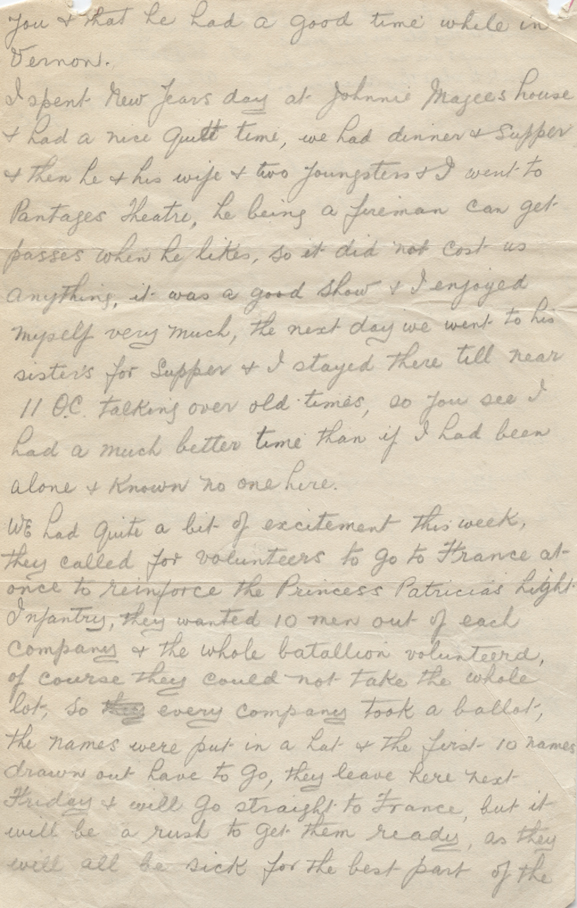 you & that he had a good time while in
Vernon.
I spent New Years day at Johnnie Magees house
& had a nice quiett time, we had dinner & Supper
& then he & his wife & two youngsters & I went to
Pantages Theatre, he being a fireman can get
passes when he likes, so it did not cost us
anything, it was a good show & I enjoyed
myself very much, the next day we went to his
sister's for Supper & I stayed there till near
11 O.C. talking over old times, so you see I
had a much better time than if I had been
alone & Known no one here.
WE had quite a bit of excitement this week,
they called for volunteers to go to France at
once to reinforce the Princess Patricia's Light
Infantry, they wanted 10 men out of each
company & the whole batallion volunteerd,
of course they could not take the whole
lot, so they every company took a ballot,
the names were put in a hat & the first 10 names
drawn out have to go, they leave here next
Friday & will go straight to France, but it
will be a rush to get them ready, as they
will all be sick for the best part of the